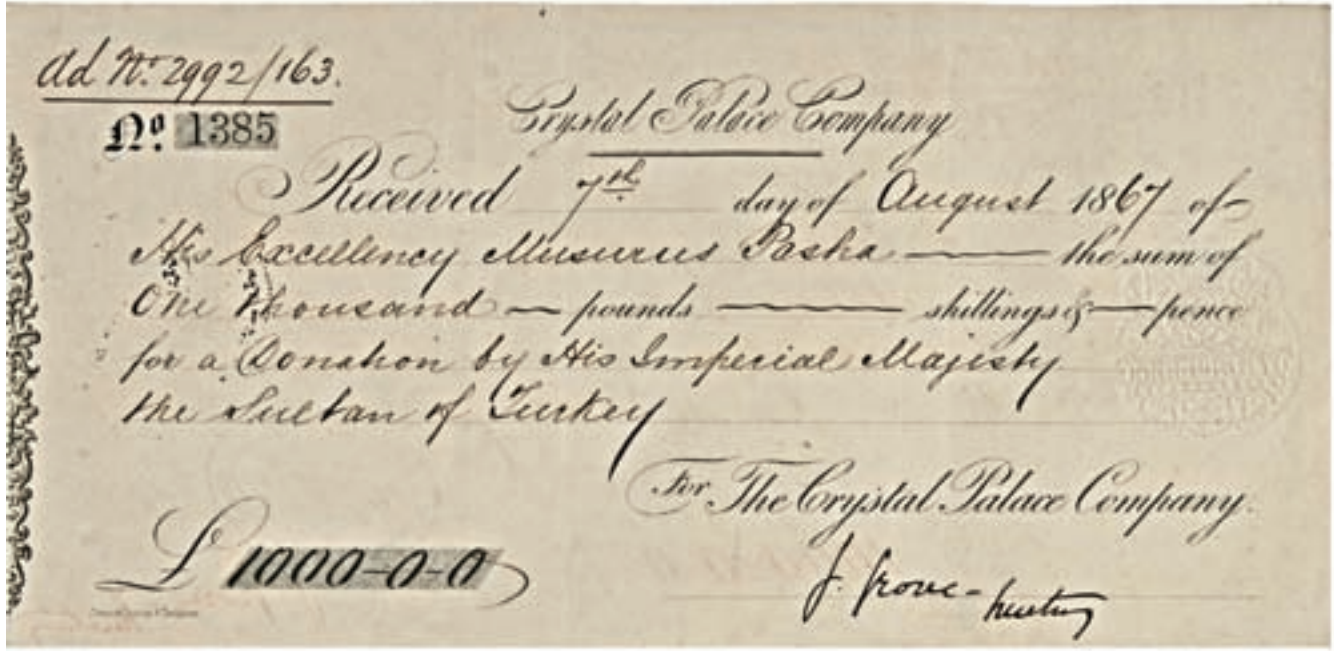 Ad No. 2992/163.
No. 1385
Crystal Palace Company
Received 7th day of August 1867 of
His Excellency Musurus Pasha the sum of
One thousand pounds shillings & pence
for a Donation by His Imperial Majesty
the Sultan of Turkey
For The Crystal Palace Company.
£ 1000-0-0
Grove